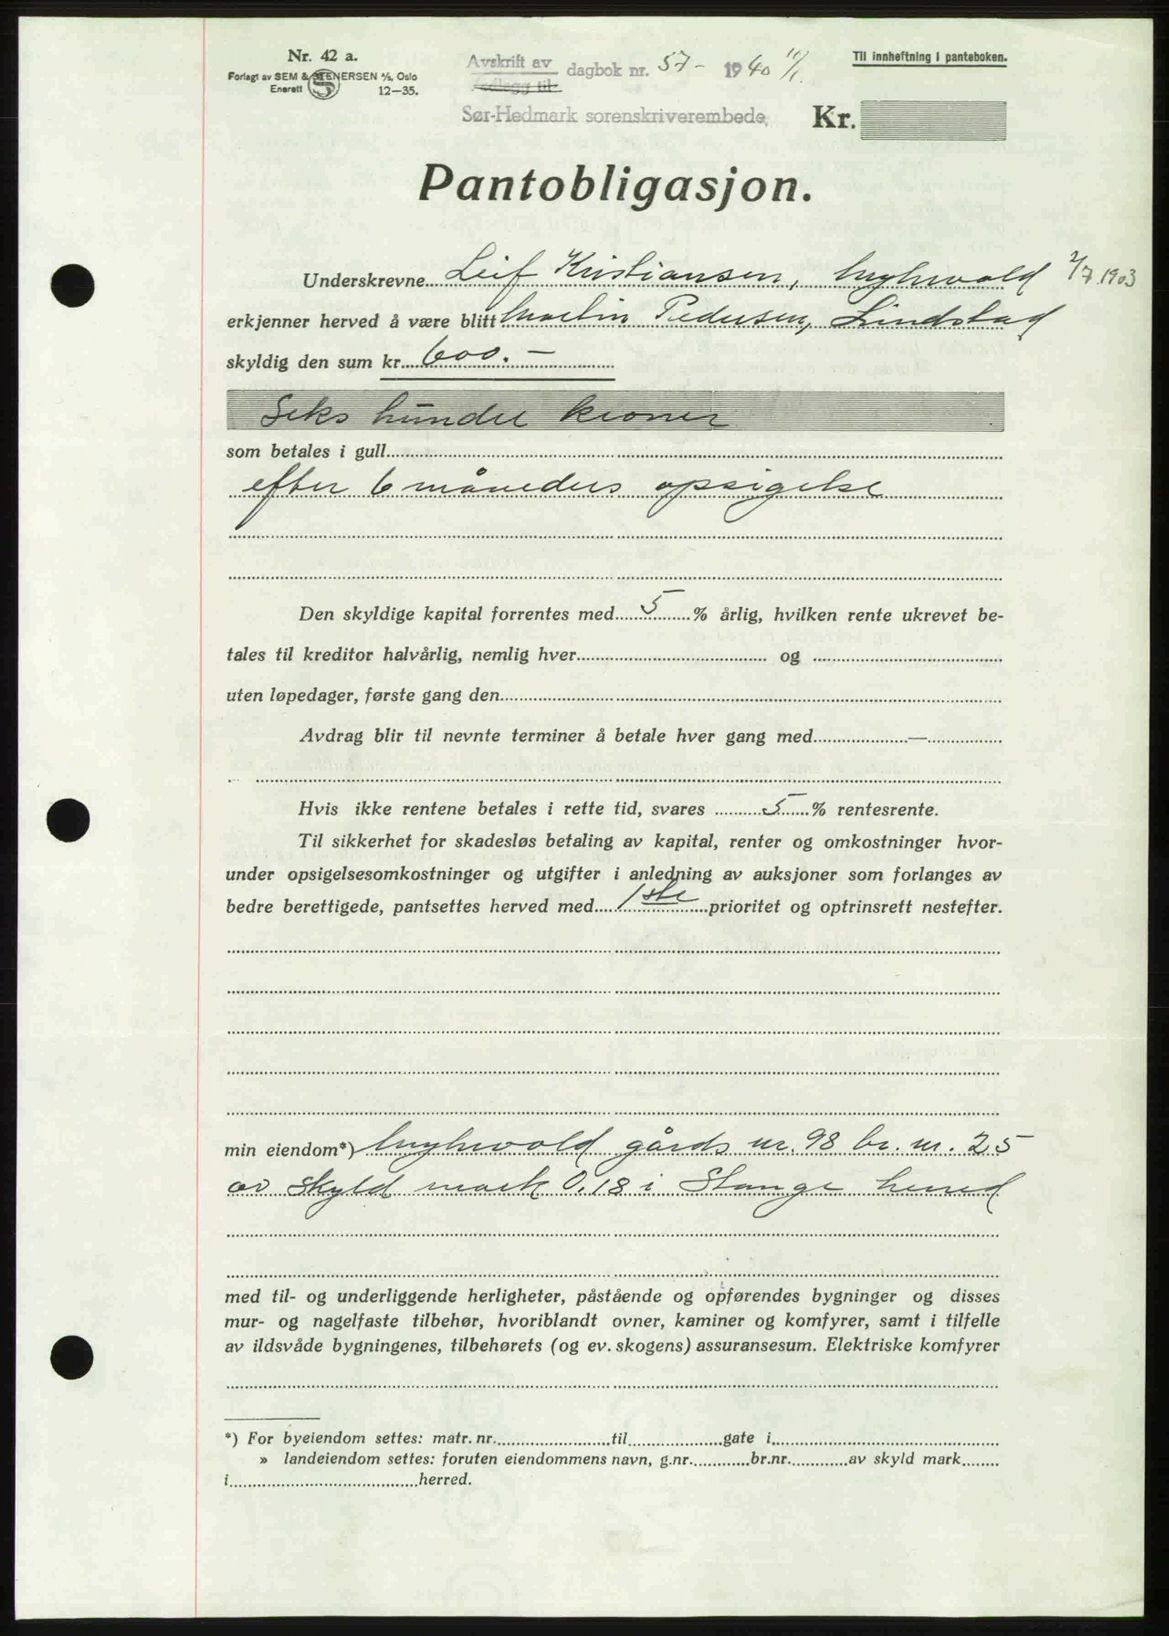 Nr. 42 a.
Forlagt av SEM & STENERSEN A/S, Oslo
Enerett 12—35.
Avskrift av
vedlegg til
dagbok nr. 57 - 1940 11/1.
Sør-Hedmark sorenskriverembede.
Til innheftning i panteboken.
Kr.
Pantobligasjon.
Underskrevne Leif Kristiansen, Myhrvold 2/7 1903
erkjenner herved å være blitt Martin Pedersen, Lindstad
skyldig den sum kr. 600.—
Seks hundre kroner
som betales i gull
efter 6 måneders opsigelse
Den skyldige kapital forrentes med 5 % årlig, hvilken rente ukrevet be-
tales til kreditor halvårlig, nemlig hver og
uten løpedager, første gang den
Avdrag blir til nevnte terminer å betale hver gang med —
Hvis ikke rentene betales i rette tid, svares 5 % rentesrente.
Til sikkerhet for skadesløs betaling av kapital, renter og omkostninger hvor-
under opsigelsesomkostninger og utgifter i anledning av auksjoner som forlanges av
bedre berettigede, pantsettes herved med 1ste prioritet og optrinsrett nestefter.
min eiendom*) Myhrvold gårds nr. 98 br. nr. 25
av skyld mark 0.18 i Stange herred
med til- og underliggende herligheter, påstående og opførendes bygninger og disses
mur- og nagelfaste tilbehør, hvoriblandt ovner, kaminer og komfyrer, samt i tilfelle
av ildsvåde bygningenes, tilbehørets (og ev. skogens) assuransesum. Elektriske komfyrer
*) For byeiendom settes: matr. nr. til gate i
» landeiendom settes: foruten eiendommens navn, g.nr. br.nr. av skyld mark
i herred.